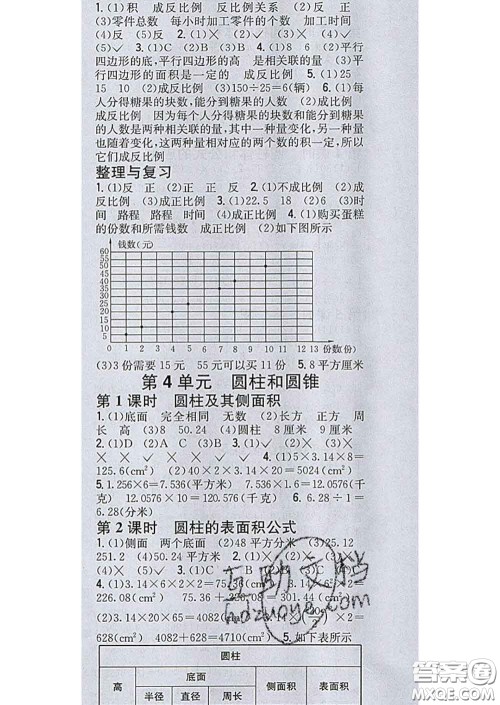 1.(1)积 成反比例 反比例关系 (2)反 正
(3)零件总数 每小时加工零件的个数 加工时间
(4)反 (5)反 2.(1)× (2)√ (3)× (4)×
(5)√ 3.(1)C (2)B (3)B 4.(1)8 6 (2)平行
四边形的底,平行四边形的高 是相关联的量 (3)平
行四边形的面积是一定的 成反比例 5.(1)25
15 10 (2)成反比例 (3)150÷25=6(辆) 6.(1)每
人分得糖果的块数,能分到糖果的人数 (2)成比例
成反比例 因为每个人分得糖果的块数和能分到糖果
的人数是两种相关联的量,其中一种量变化,另一种量
也随着变化,这两种量相对应的两个数的积一定,所以
它们成反比例
整理与复习
1.(1)反 正 (2)正 正 反 2.(1)不成比例 (2)成
反比例 (3)成正比例 3.(1)22.5 18 (2)6 (3)时
间 路程 路程 时间 4.(1)购买蛋糕
的份数和所需钱数 成正比例 (2)如下图所示
钱数(元)
60
55
50
45
40
35
30
25
20
15
10
5
0 1 2 3 4 5 6 7 8 9 10 11 12 13 份数(份)
(3)3份需要15元 55元可以买11份 5.8平方厘米
第4单元 圆柱和圆锥
第1课时 圆柱及其侧面积
1.(1)底面 完全相同 无数 (2)长方 正方 周
长 高 (3)8 50.24 (4)圆柱 8厘米 9厘米
2.(1)D (2)A C (3)B 3.(1)× (2)√ (3)×
× × √ × √ √ 4.(1)5×3.14×8=
125.6(cm²) (2)40×2×3.14×20=5024(cm²)
5.1.256×6=7.536(平方米) 7.536×1.6=12.0576
(千克) 12.0576×10=120.576(千克) 6.6.28÷1=
6.28(分米)
第2课时 圆柱的表面积公式
1.(1)侧面 两个底面 (2)48平方分米 (3)25.12
251.2 (4)50.24平方米 2.(1)C (2)B (3)C
(4)× (5)√ 4.(1)3.14×6×2×
226.08(cm²) 226.08=
(2)3.14×20×65= 3.14×
628(cm²) 4082+628=4710(cm²) 5.如下表所示
圆柱
高 底面 侧面积 表面积
半径 直径 周长
互助文档
hdzuoye.com
答案圈
MXQE.COM